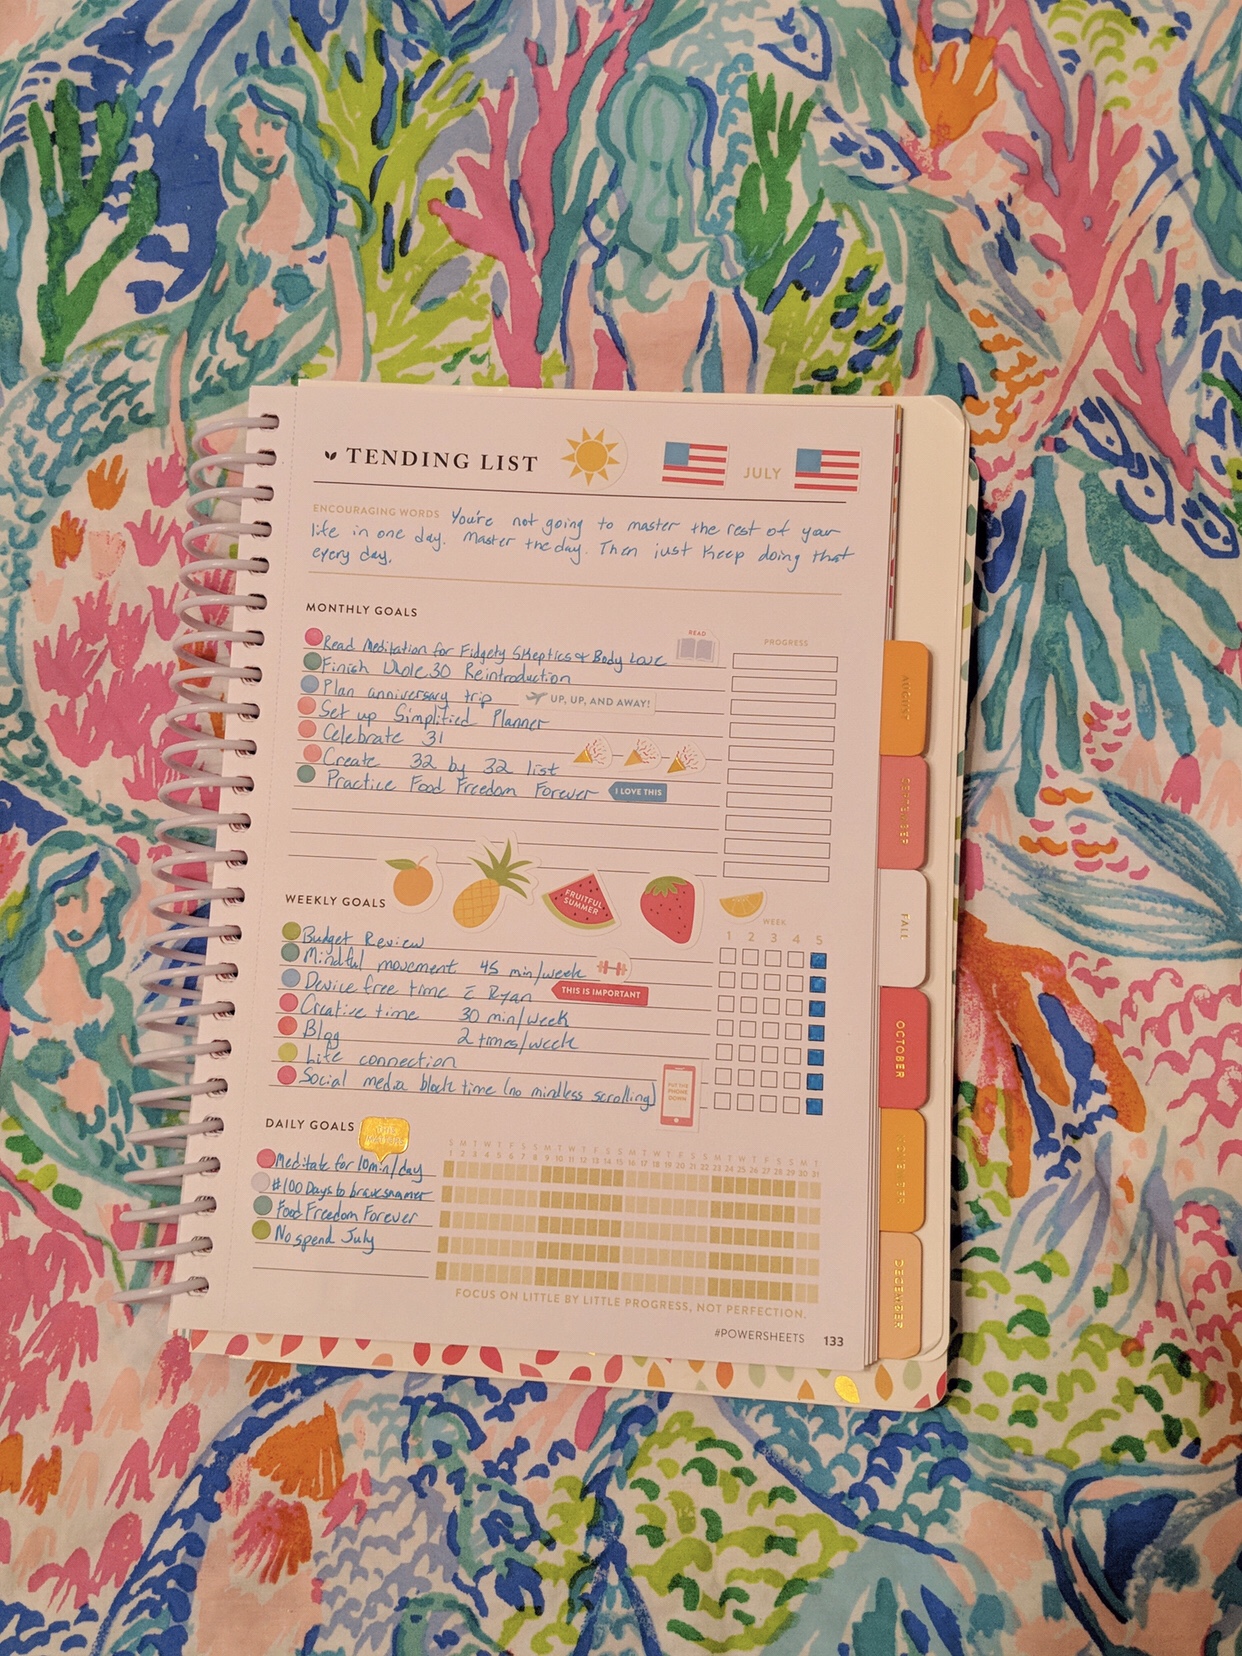 TENDING LIST
JULY
ENCOURAGING WORDS You're not going to master the rest of your
life in one day. Master the day. Then just keep doing that
every day.
MONTHLY GOALS
PROGRESS
Read Meditation for Fidgety Skeptics + Body Love
READ
Finish Whole 30 Reintroduction
Plan anniversary trip
UP, UP, AND AWAY!
Set up Simplified Planner
Celebrate 31
Create 32 by 32 list
Practice Food Freedom Forever
I LOVE THIS
FRUITFUL
SUMMER
WEEKLY GOALS
WEEK
1 2 3 4 5
Budget Review
Mindful movement 45 min/week
Device free time c̄ Ryan
THIS IS IMPORTANT
Creative time 30 min/week
Blog 2 times/week
Life connection
Social media block time (no mindless scrolling)
PUT THE
PHONE
DOWN
DAILY GOALS
S M T W T F S S M T W T F S S M T W T F S S M T W T F S S M T
1 2 3 4 5 6 7 8 9 10 11 12 13 14 15 16 17 18 19 20 21 22 23 24 25 26 27 28 29 30 31
Meditate for 10min/day
#100 Days to
Food Freedom Forever
No spend July
FOCUS ON LITTLE BY LITTLE PROGRESS, NOT PERFECTION.
#POWERSHEETS 133
AUGUST
SEPTEMBER
FALL
OCTOBER
NOVEMBER
DECEMBER